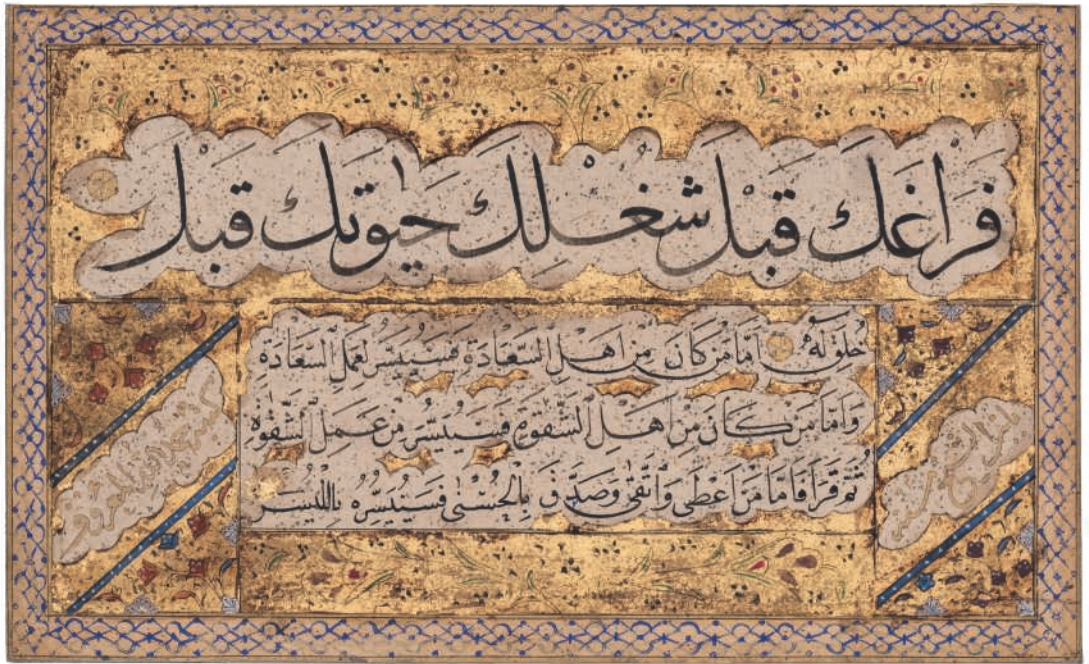 فَرَاغَكَ قَبْلَ شُغْلِكَ حَيٰوتَكَ قَبْلَ
خُلِقَ لَهُ اَمَّا مَنْ كَانَ مِنْ اَهْلِ السَّعَادَةِ فَسَيُيَسَّرُ لِعَمَلِ السَّعَادَةِ
وَاَمَّا مَنْ كَانَ مِنْ اَهْلِ الشَّقْوَةِ فَسَيُيَسَّرُ مِنْ عَمَلِ الشَّقْوَةِ
ثُمَّ قَرَاَ فَاَمَّا مَنْ اَعْطَى وَاتَّقَى وَصَدَّقَ بِالْحُسْنٰى فَسَنُيَسِّرُهُ بِاللْيُسْرٰ